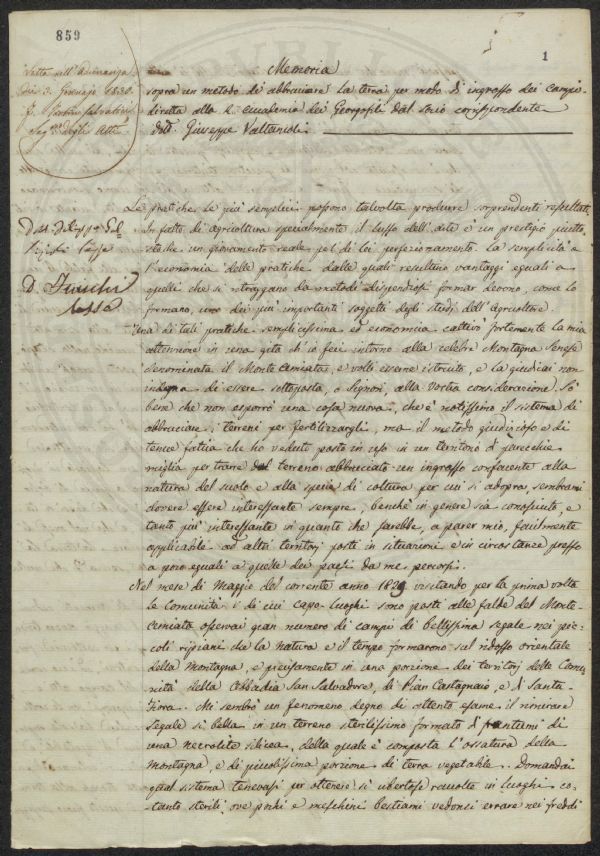 859
1
Letta nell'Adunanza
de' 3. Gennajo 1830.
Seg.rio degli Atti
Memoria
sopra un metodo di abbruciare la terra per modo di ingrosso dei campi
diretta alla R. Accademia dei Georgofili dal socio corrispondente
Dott. Giuseppe Valtancoli.
Le pratiche le più semplici possono talvolta produrre sorprendenti resultati.
In fatto di agricoltura specialmente il lusso dell'arte è un prestigio piutto-
sto che un giovamento reale pel di lei perfezionamento. La semplicità e
l'economia delle pratiche dalle quali resultino vantaggi eguali a
quelli che si ritraggano da metodi dispendiosi formar devono, come lo
formano, uno dei più importanti soggetti degli studj dell'agricoltore.
Una di tali pratiche semplicissima ed economica cattivò fortemente la mia
attenzione in una gita ch'io feci intorno alla celebre Montagna Senese
denominata il Monte Camiata, e volli esserne istruito, e la giudicai non
indegna di essere sottoposta, o Signori, alla Vostra considerazione. Sò
bene che non esporrò una cosa nuova, che è notissimo il sistema di
abbruciare i terreni per fertilizzargli, ma il metodo giudizioso e di
tenue fatica che ho veduto posto in uso in un territorio di parecchie
miglia per trarre dal terreno abbruciato un ingrosso confacente alla
natura del suolo e alla specie di coltura per cui si adopra, sembrami
dovere essere interessante sempre, benchè in genere sia conosciuto, e
tanto più interessante in quanto che sarebbe, a parer mio, facilmente
applicabile ad altri territorj posti in situazioni e in circostanze presso
a poco eguali a quelle dei paesi da me percorsi.
Nel mese di Maggio del corrente anno 1829 visitando per la prima volta
le Comunità i di cui capo-luoghi sono posti alle falde del Monte-
Camiata osservai gran numero di campi di bellissima segale nei pic-
coli ripiani che la natura e il tempo formarono sul ridosso orientale
della Montagna, e precisamente in una porzione dei territorj delle Comu-
nità della Abbadia San Salvadore, di Pian Castagnaio, e di Santa-
Fiora. Mi sembrò un fenomeno degno di attento esame il rimirare
segale sì bella in un terreno sterilissimo formato di frantumi di
una necrolite silicea, della quale è composta l'ossatura della
Montagna, e di piccolissima porzione di terra vegetabile. Domandai
qual sistema tenevasi per ottenere sì ubertose raccolte in luoghi co-
tanto sterili, ove pochi e meschini bestiami vedonsi errare nei freddi